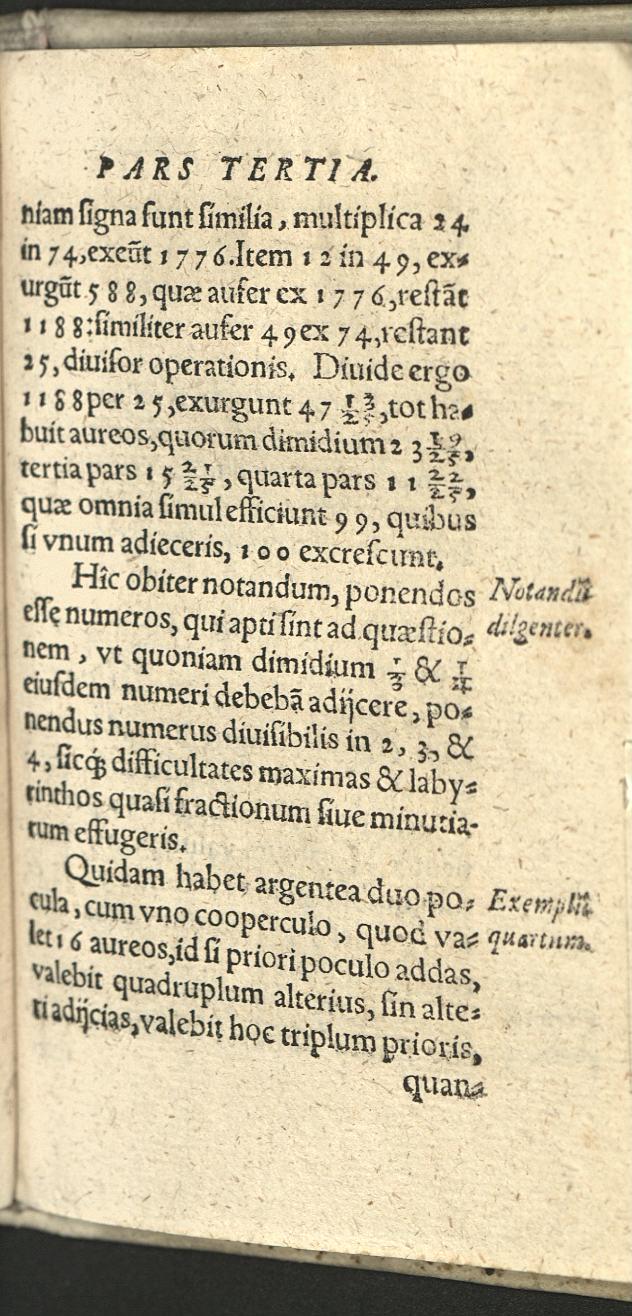 PARS TERTIA.
niam signa sunt similia, multiplica 24
in 74, exeūt 1776. Item 12 in 49, ex-
urgūt 588, quæ aufer ex 1776, restāt
1188: similiter aufer 49 ex 74, restant
25, diuisor operationis. Diuide ergo
1188 per 25, exurgunt 47 13/25, tot ha-
buit aureos, quorum dimidium 23 19/25,
tertia pars 15 21/25, quarta pars 11 22/25,
quæ omnia simul efficiunt 99, quibus
si vnum adieceris, 100 excrescunt.
Hîc obiter notandum, ponendos
esse numeros, qui apti sint ad quæstio-
nem, vt quoniam dimidium 1/3 & 1/4
eiusdem numeri debebā adijcere, po-
nendus numerus diuisibilis in 2, 3, &
4, sicq; difficultates maximas & laby-
rinthos quasi fractionum siue minutia-
rum effugeris.
Notandū
diligenter.
Quidam habet argentea duo po-
cula, cum vno cooperculo, quod va-
let 16 aureos, id si priori poculo addas,
valebit quadruplum alterius, sin alte-
ri adijcias, valebit hoc triplum prioris,
Exemplū
quartum.
quan-